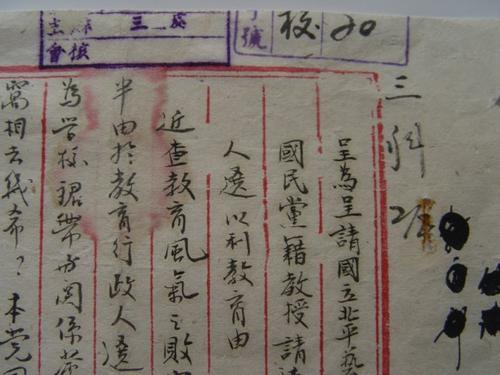 號 校 20
三科
呈為呈請國立北平藝
國民黨籍教授請
人選以利教育由
近查教育風氣之敗
半由於教育行政人選
為学校裙帶 關係
窩相去幾希？本党